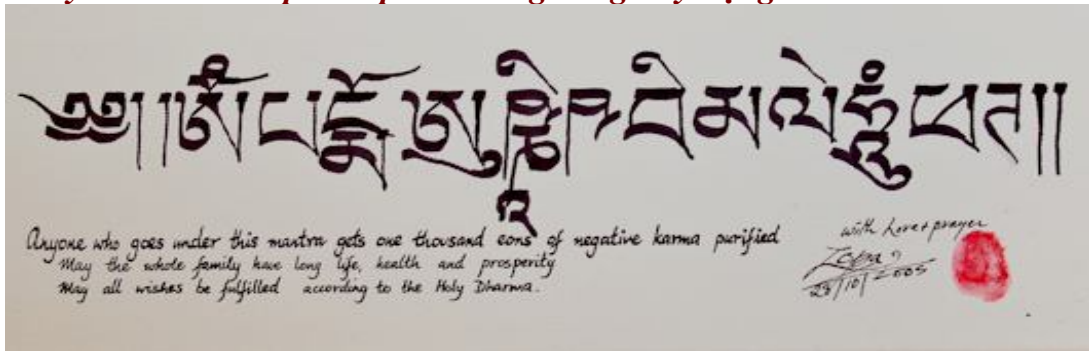 ༄༅། །ཨོཾ་པདྨོ་ཨུཥྞཱིཥ་བི་མ་ལེ་ཧཱུྃ་ཕཊ། །
Anyone who goes under this mantra gets one thousand eons of negative karma purified
May the whole family have long life, health and prosperity
May all wishes be fulfilled according to the Holy Dharma.
with Love + prayer
Zopa
28/10/2005